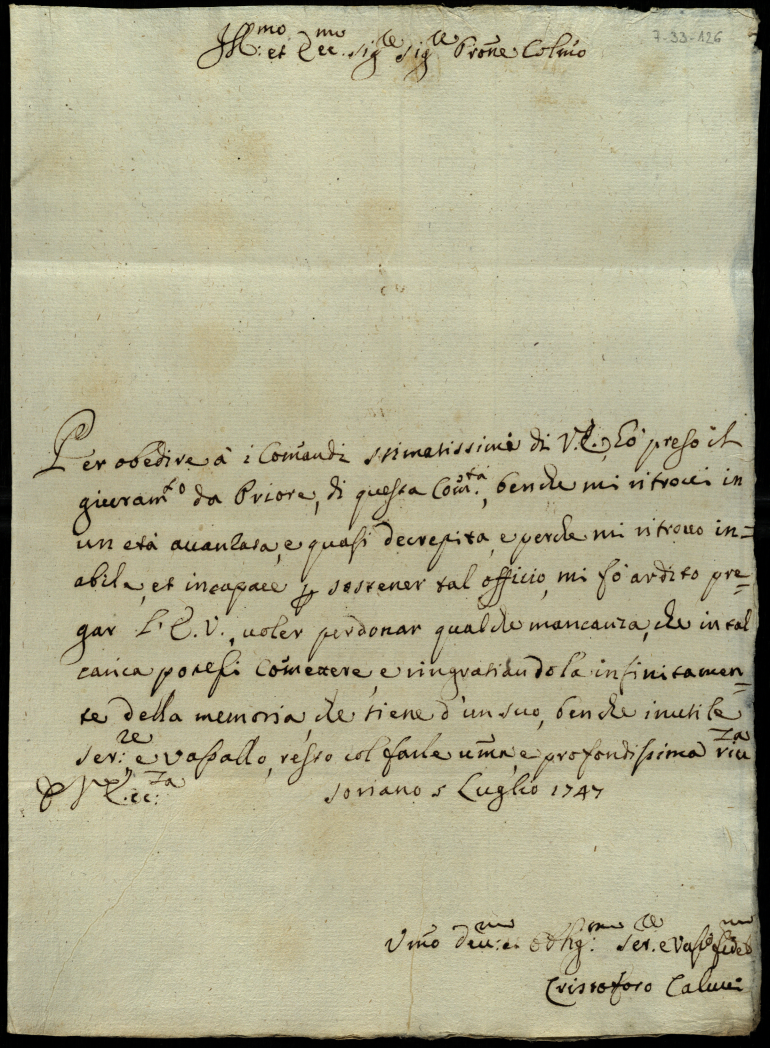 7-33-126
Ill:mo et Ecc.mo Sig.re Sig.re Prone Colmo
Per obedire à i Comandi stimatissimi di V.E., hò preso il
giuram.to da Priore, di questa Com.tà, benche mi ritrovi in
un età avanzata, e quasi decrepita, e perche mi ritrovo in=
abile, et incapace p sostener tal officio, mi fò ardito pre=
gar l'E.V., voler perdonar qualche mancanza, che in tal
carica potessi Comettere, e ringratiandola infinitamen=
te della memoria, che tiene d'un suo, benche inutile
ser:re e vassallo, resto col farle uma, e profondissima riv.za
D V. Ecc:za Soriano 5 Luglio 1747
Vmo Dev:mo et Obblig:mo Ser.re e Vass.o fidel.mo
Cristoforo